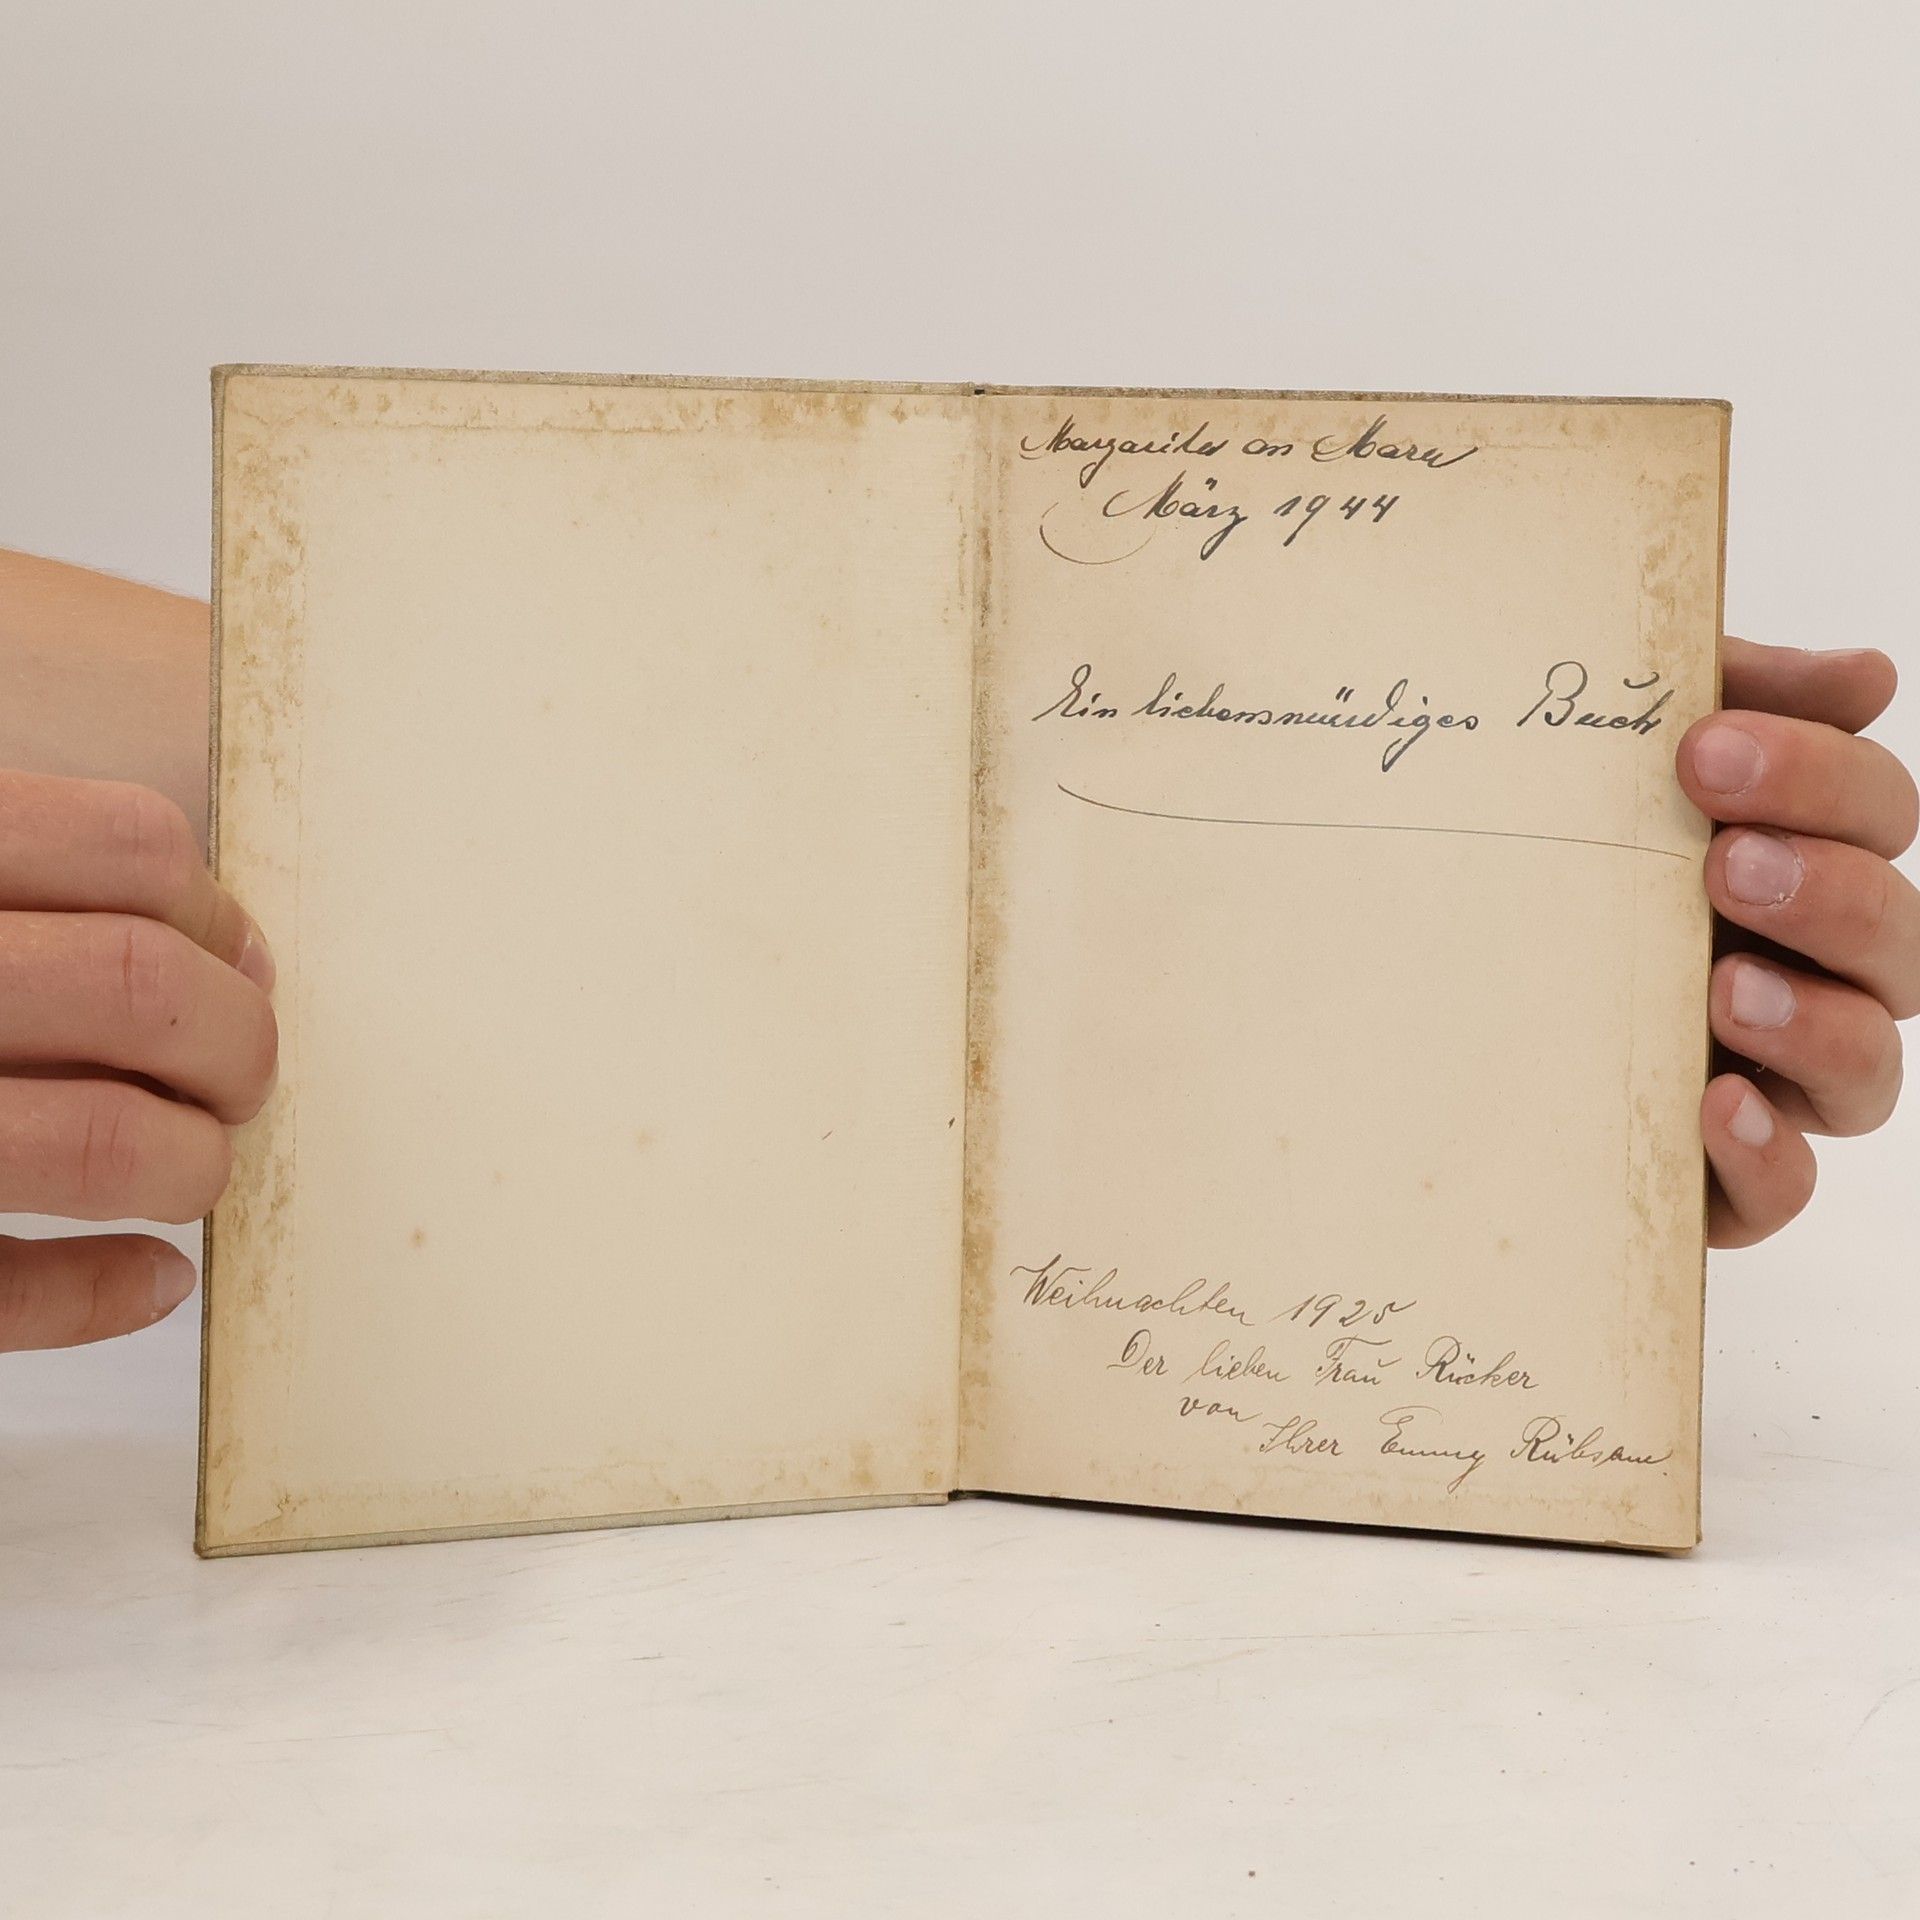 Margarita an Mara
März 1944
Ein liebenswürdiges Buch
Weihnachten 1925
Der lieben Frau Rücker
von
Ihrer Emmy Rübsam.